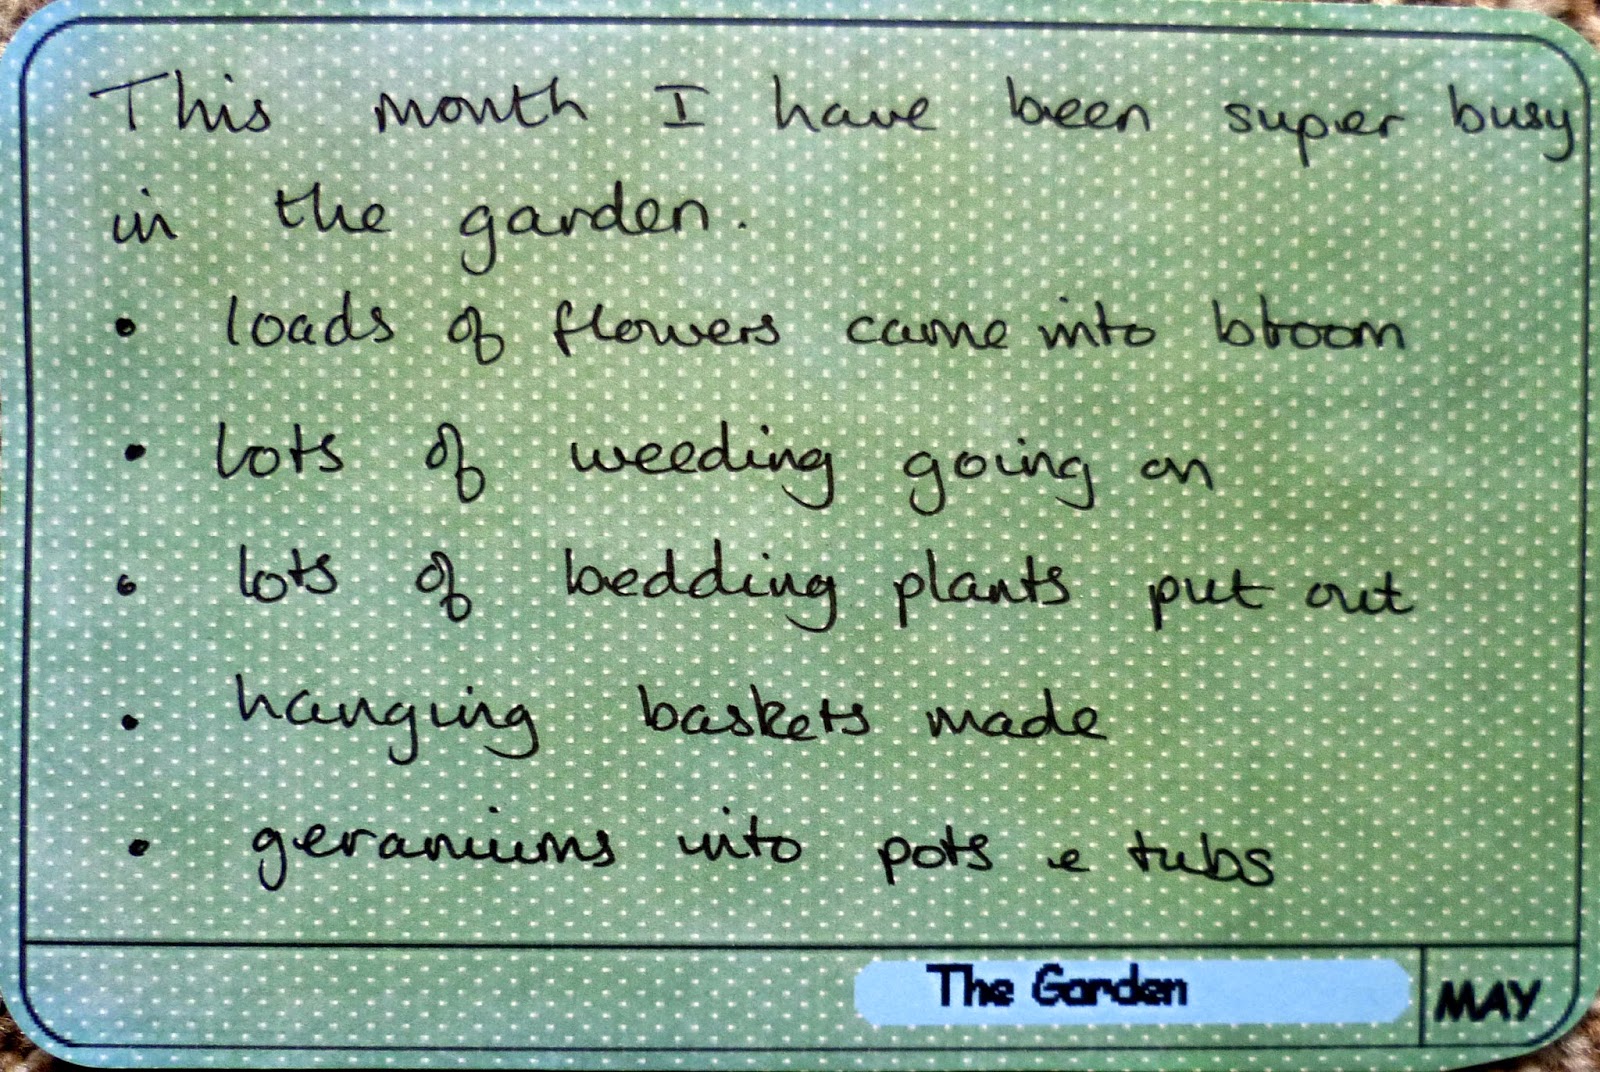 This month I have been super busy
in the garden.
• loads of flowers came into bloom
• lots of weeding going on
• lots of bedding plants put out
• hanging baskets made
• geraniums into pots e tubs
The Garden
MAY